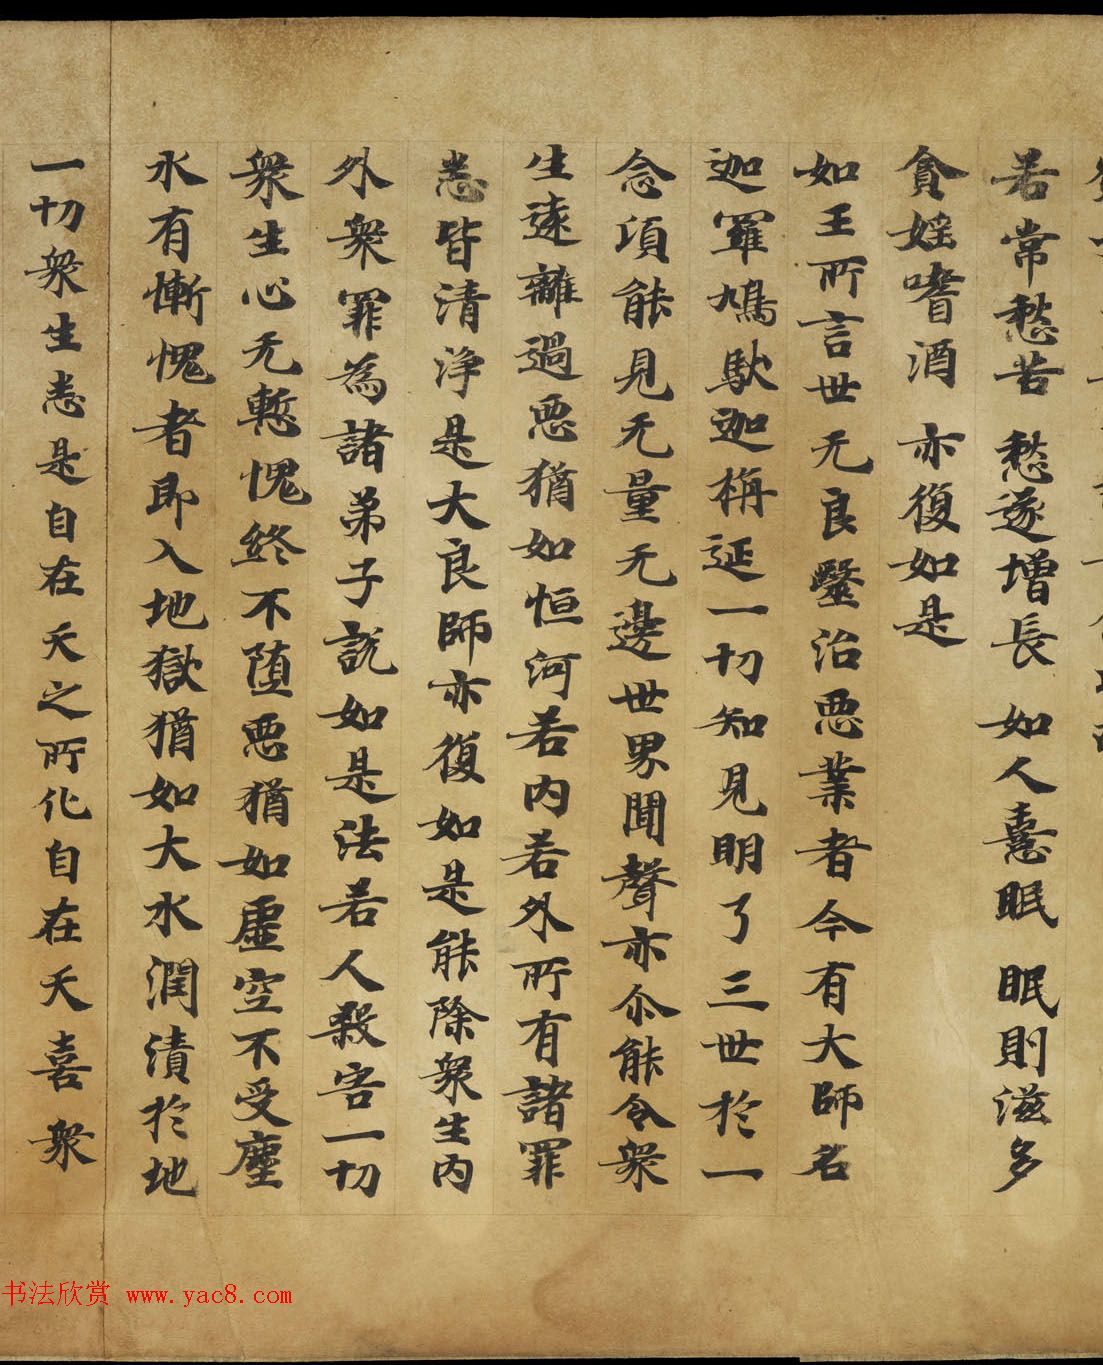 若常愁苦 愁遂增長 如人憙眠 眠則滋多
貪婬嗜酒 亦復如是
如王所言世无良毉治惡業者今有大師名
迦羅鳩馱迦栴延一切知見明了三世於一
念項能見无量无邊世界聞聲亦尒能令衆
生遠離過惡猶如恒河若内若外所有諸罪
悉皆清淨是大良師亦復如是能除衆生内
外衆罪為諸弟子說如是法若人殺害一切
衆生心无慙愧終不墮惡猶如虛空不受塵
水有慚愧者即入地獄猶如大水潤漬於地
一切衆生悉是自在天之所化自在天喜衆
书法欣赏 www.yac8.com